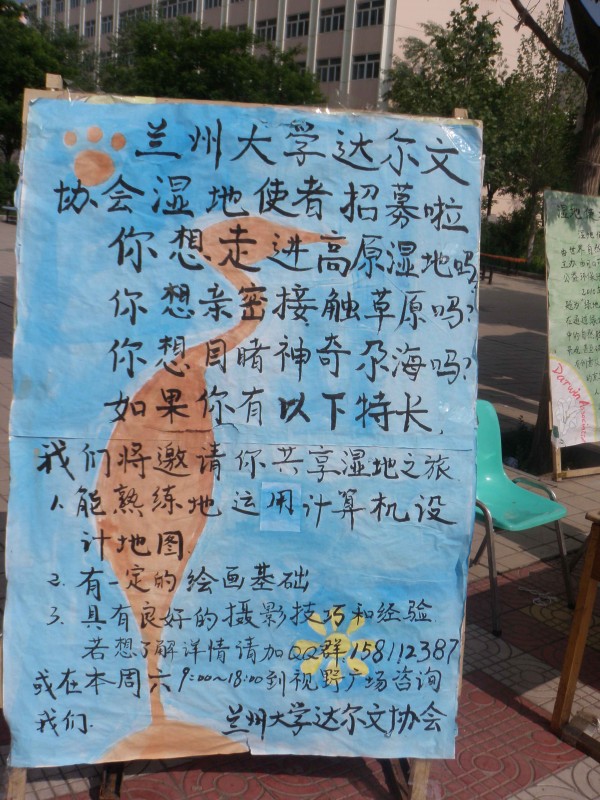 兰州大学达尔文
协会湿地使者招募啦
你想走进高原湿地吗
你想亲密接触草原吗?
你想目睹神奇尕海吗?
如果你有以下特长,
我们将邀请你共享湿地之旅
1.能熟练地运用计算机设
计地图.
2.有一定的绘画基础
3.具有良好的摄影技巧和经验
若想了解详情请加QQ群158112387
或在本周六9:00~18:00到视野广场咨询
我们.
兰州大学达尔文协会
Darwin